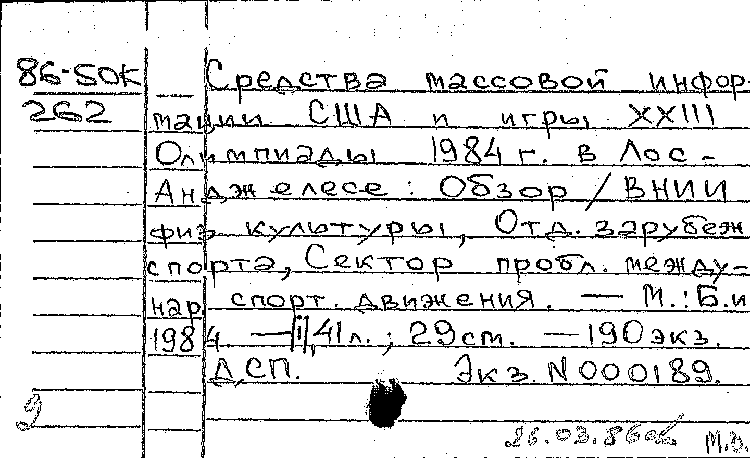 86-50К
262
Средства массовой инфор-
мации США и игры XXIII
Олимпиады 1984 г. в Лос-
Анджелесе: Обзор / ВНИИ
физ. культуры, Отд. зарубеж
спорта, Сектор пробл. между-
нар. спорт. движения. — М.: Б.и
1984. — [1], 41 л.; 29 см. — 190 экз.
ДСП. Экз. N 000189.
9
26.03.86 М.В.